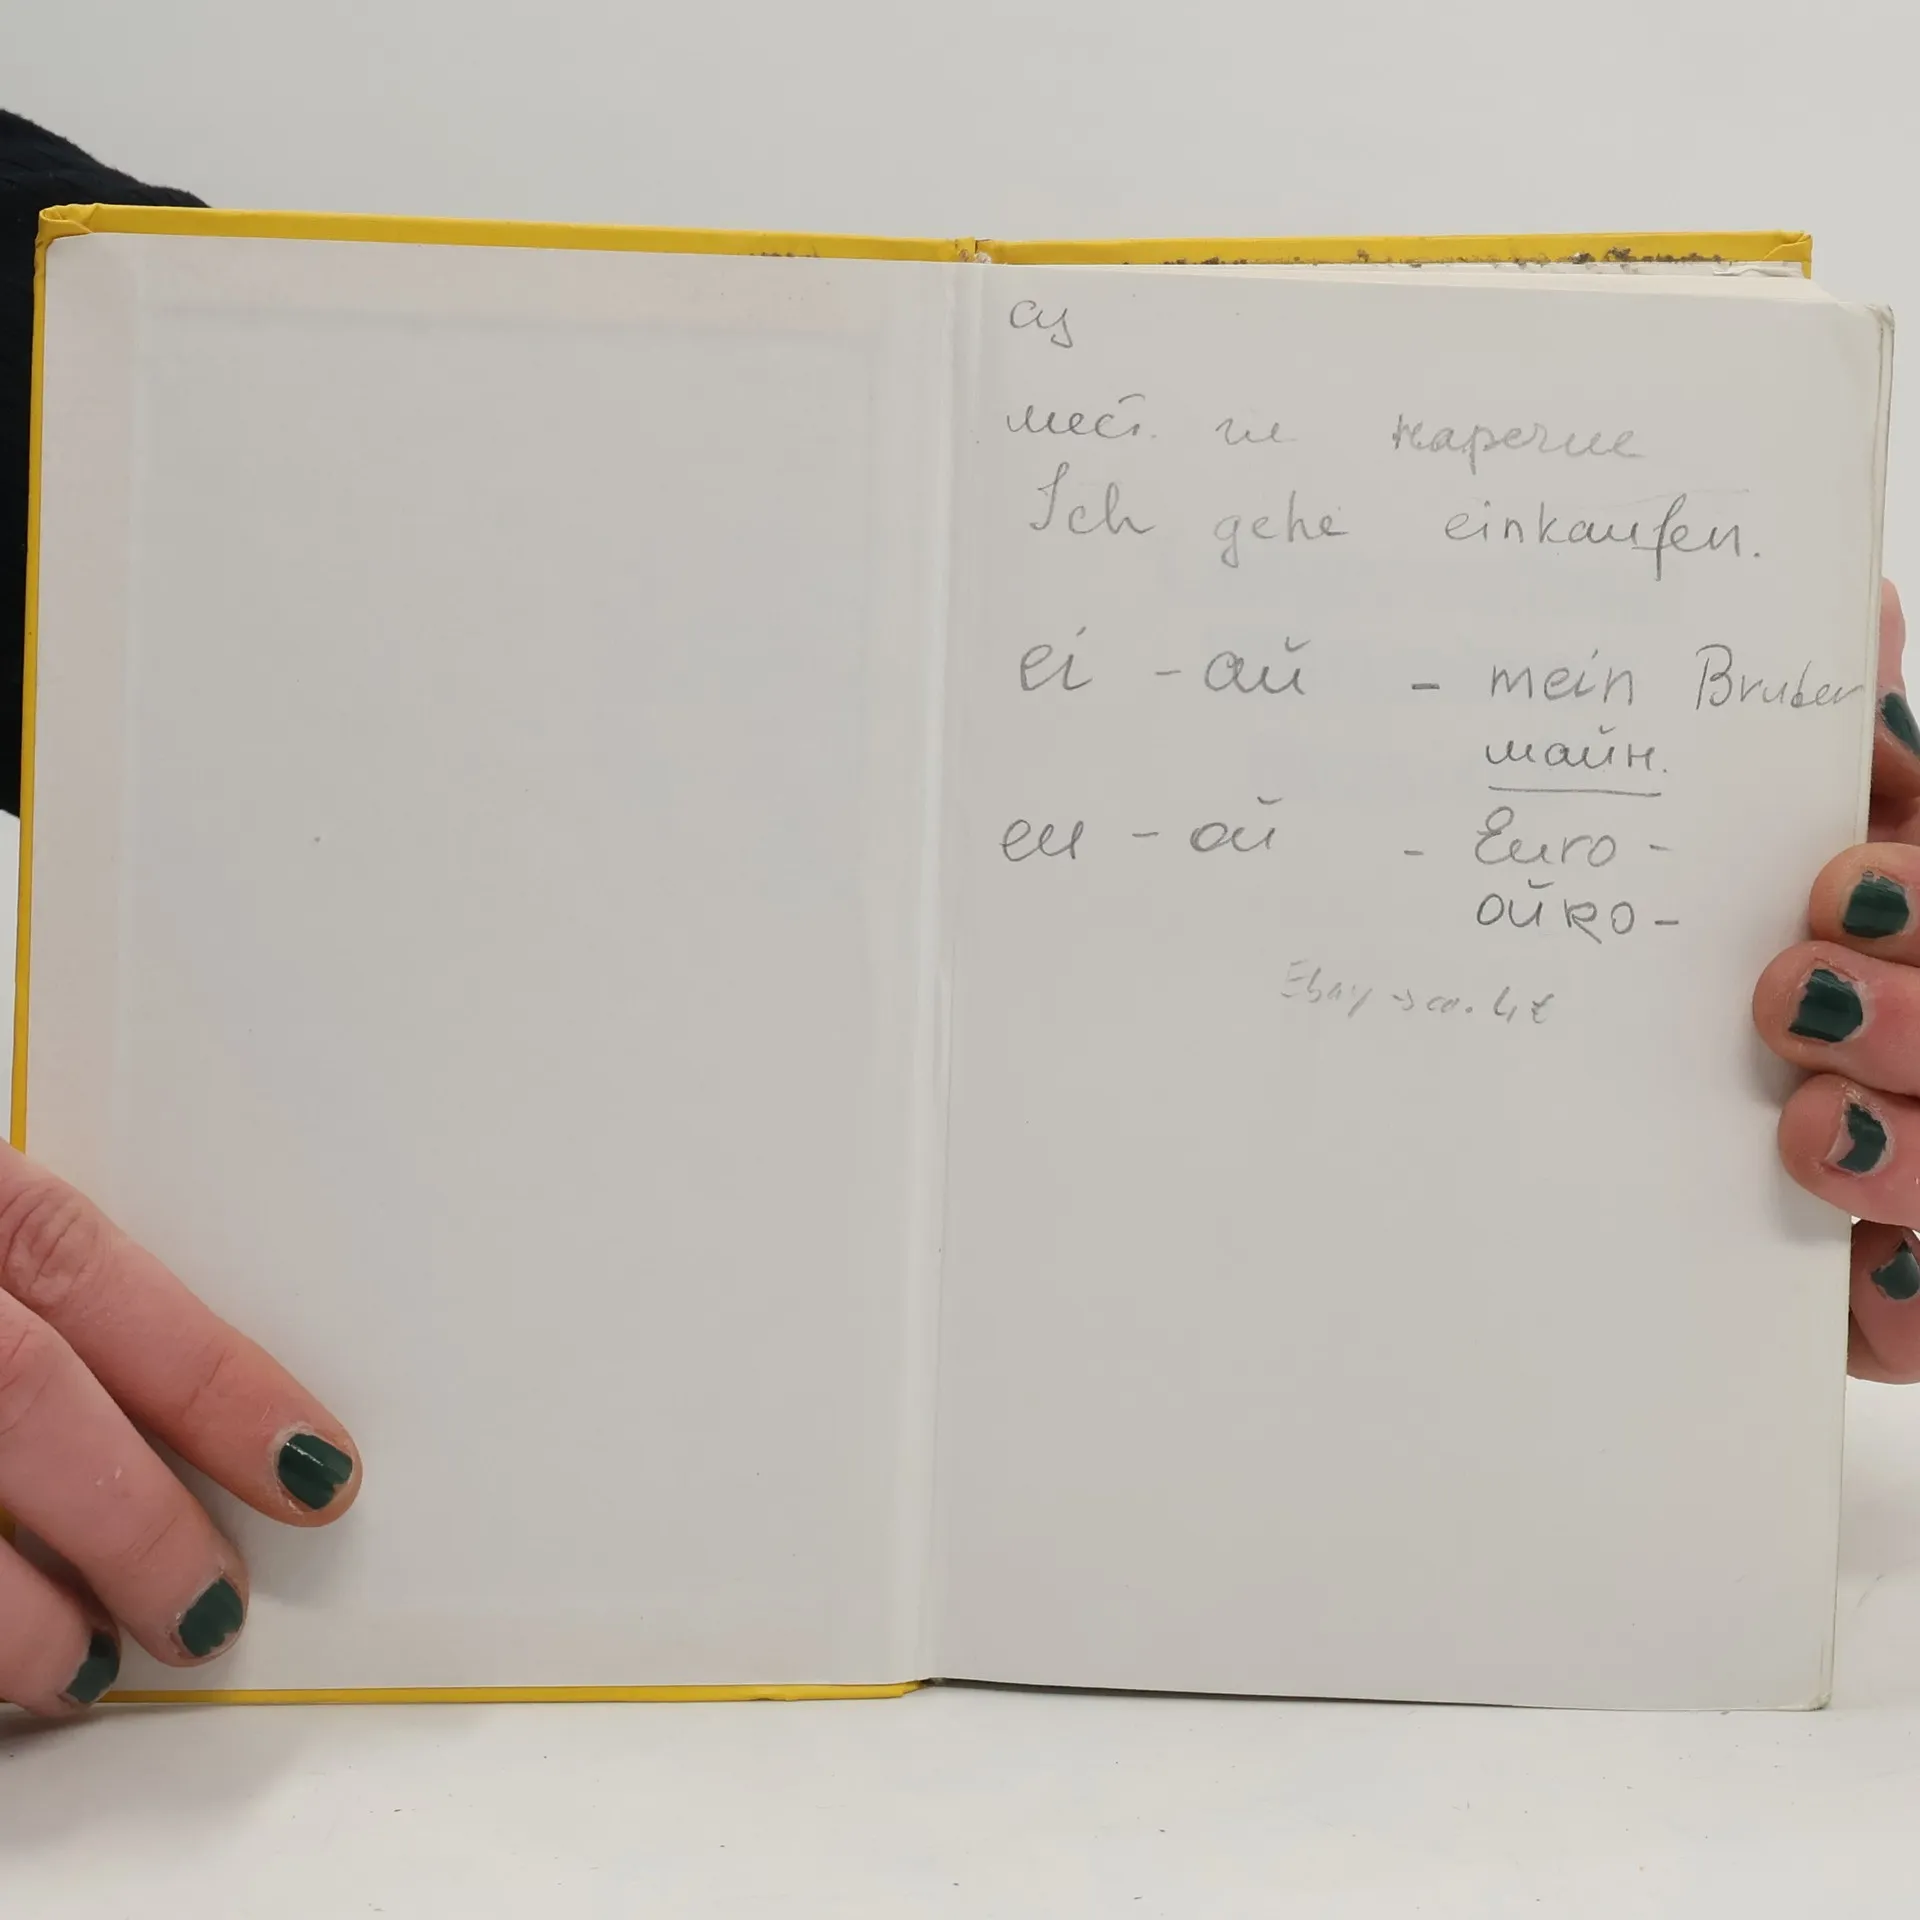 мест. гл наречие
Ich gehe einkaufen.
ei - ай - mein Bruder
майн.
eu - ой - Euro -
ойRо -
Ebay → ca. 4 €